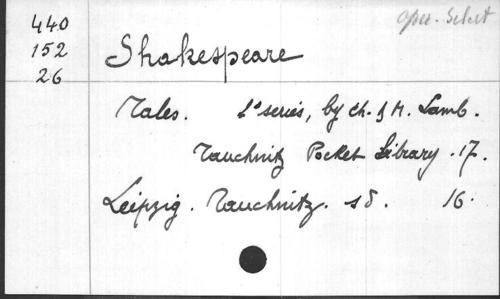 440
152
26
Oper. Select
Shakespeare
Tales. 1ª series, by Ch. & M. Lamb.
Tauchnitz Pocket Library . 17.
Leipzig. Tauchnitz. sd. 16.